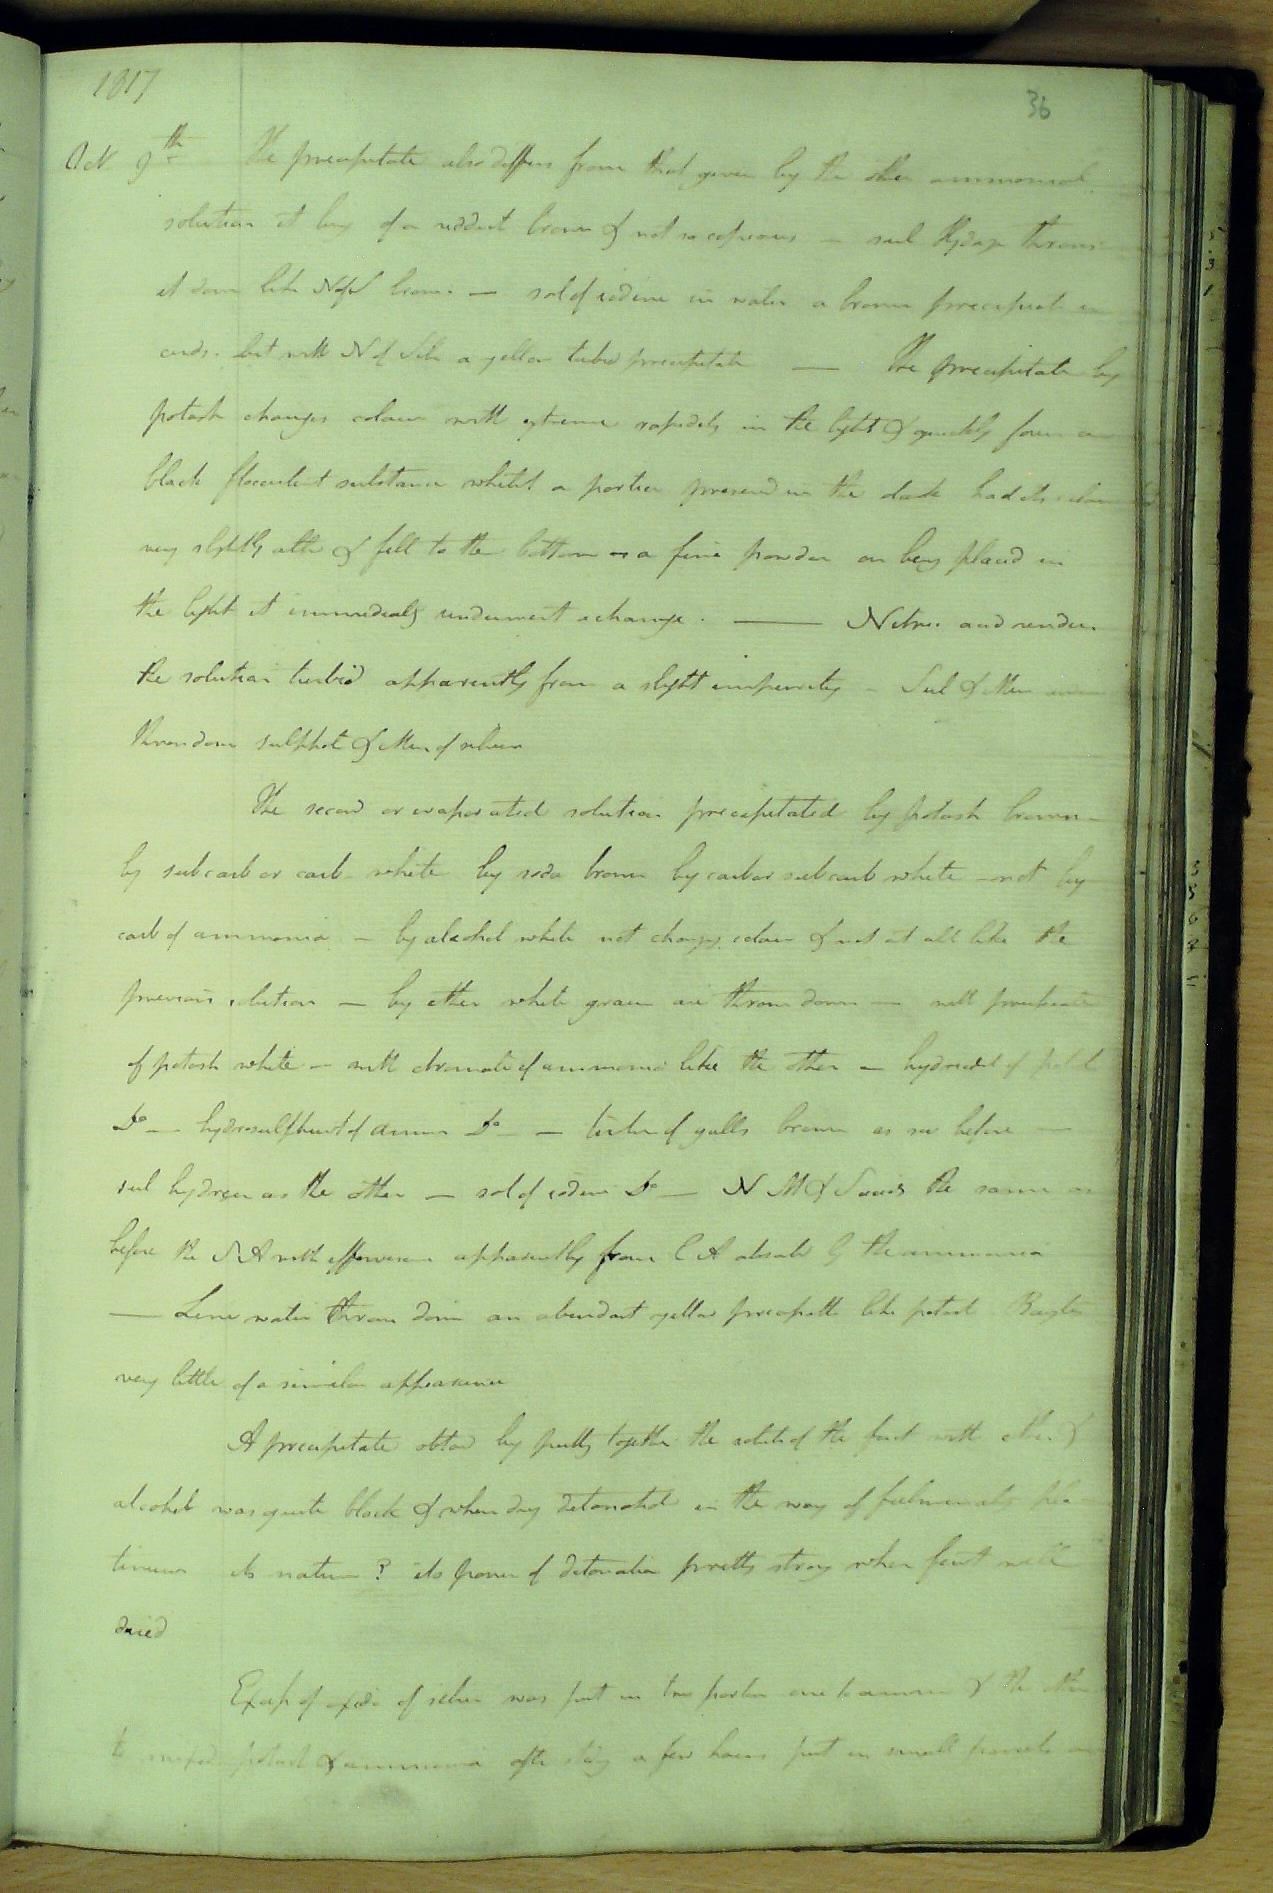 1817
36
Oct 9th The precipitate also differs from that given by the other ammoniacal
solution it being of a reddest brown & not so copious — sul Hydrogn throws
it down like N of S brown — sol of iodine in water a brown precipitate in
curds. but with N of Silr a yellow turbid precipitate — The precipitate by
potash changes colour with extreme rapidity in the light & quickly forms a
black flocculent substance whilst a portion preserved in the dark had its colour
very slightly alterd & fell to the bottom as a fine powder on being placed in
the light it immediately underwent a change. — Nitric acid renders
the solution turbid apparently from a slight impurity – Sul & Mur
throw down sulphat & Mur of silver
The second or evaporated solution precipitated by potash brown –
by subcarb or carb white by soda brown by carb or subcarb white – not by
carb of ammonia – by alcohol white not changing colour & not at all like the
previous solution — by ether white grains are thrown down — with prussiate
of potash white – with chromate of ammonia like the other – hydriodat of potash
Do — hydrosulphuret of ammon Do — — tinter of galls brown as so before —
sul hydrogn as the other — sol of iodine Do — N M & S acids the same as
before the N A with effervescen apparently from C A absorbd by the ammonia
— Lime water throws down an abundant yellow precipitate like potash Baryta
very little of a similar appearance
A precipitate obtaind by putting together the solutn of the first with ether &
alcohol was quite black & when dry detonated in the way of fulminating pla
tinum its nature? its power of detonation pretty strong when first well
dried
Exp of oxide of silver was put in two portions one to ammon & the other
to mixed potash & ammonia after staing a few hours put in small parcels on